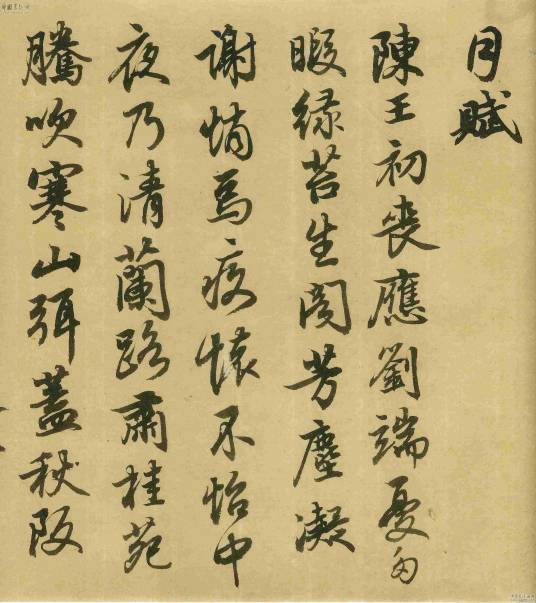 月賦
陳王初喪應劉端憂多
暇緑苔生閣芳塵凝
謝悄焉疚懷不怡中
夜乃清蘭路肅桂苑
騰吹寒山弭蓋秋阪